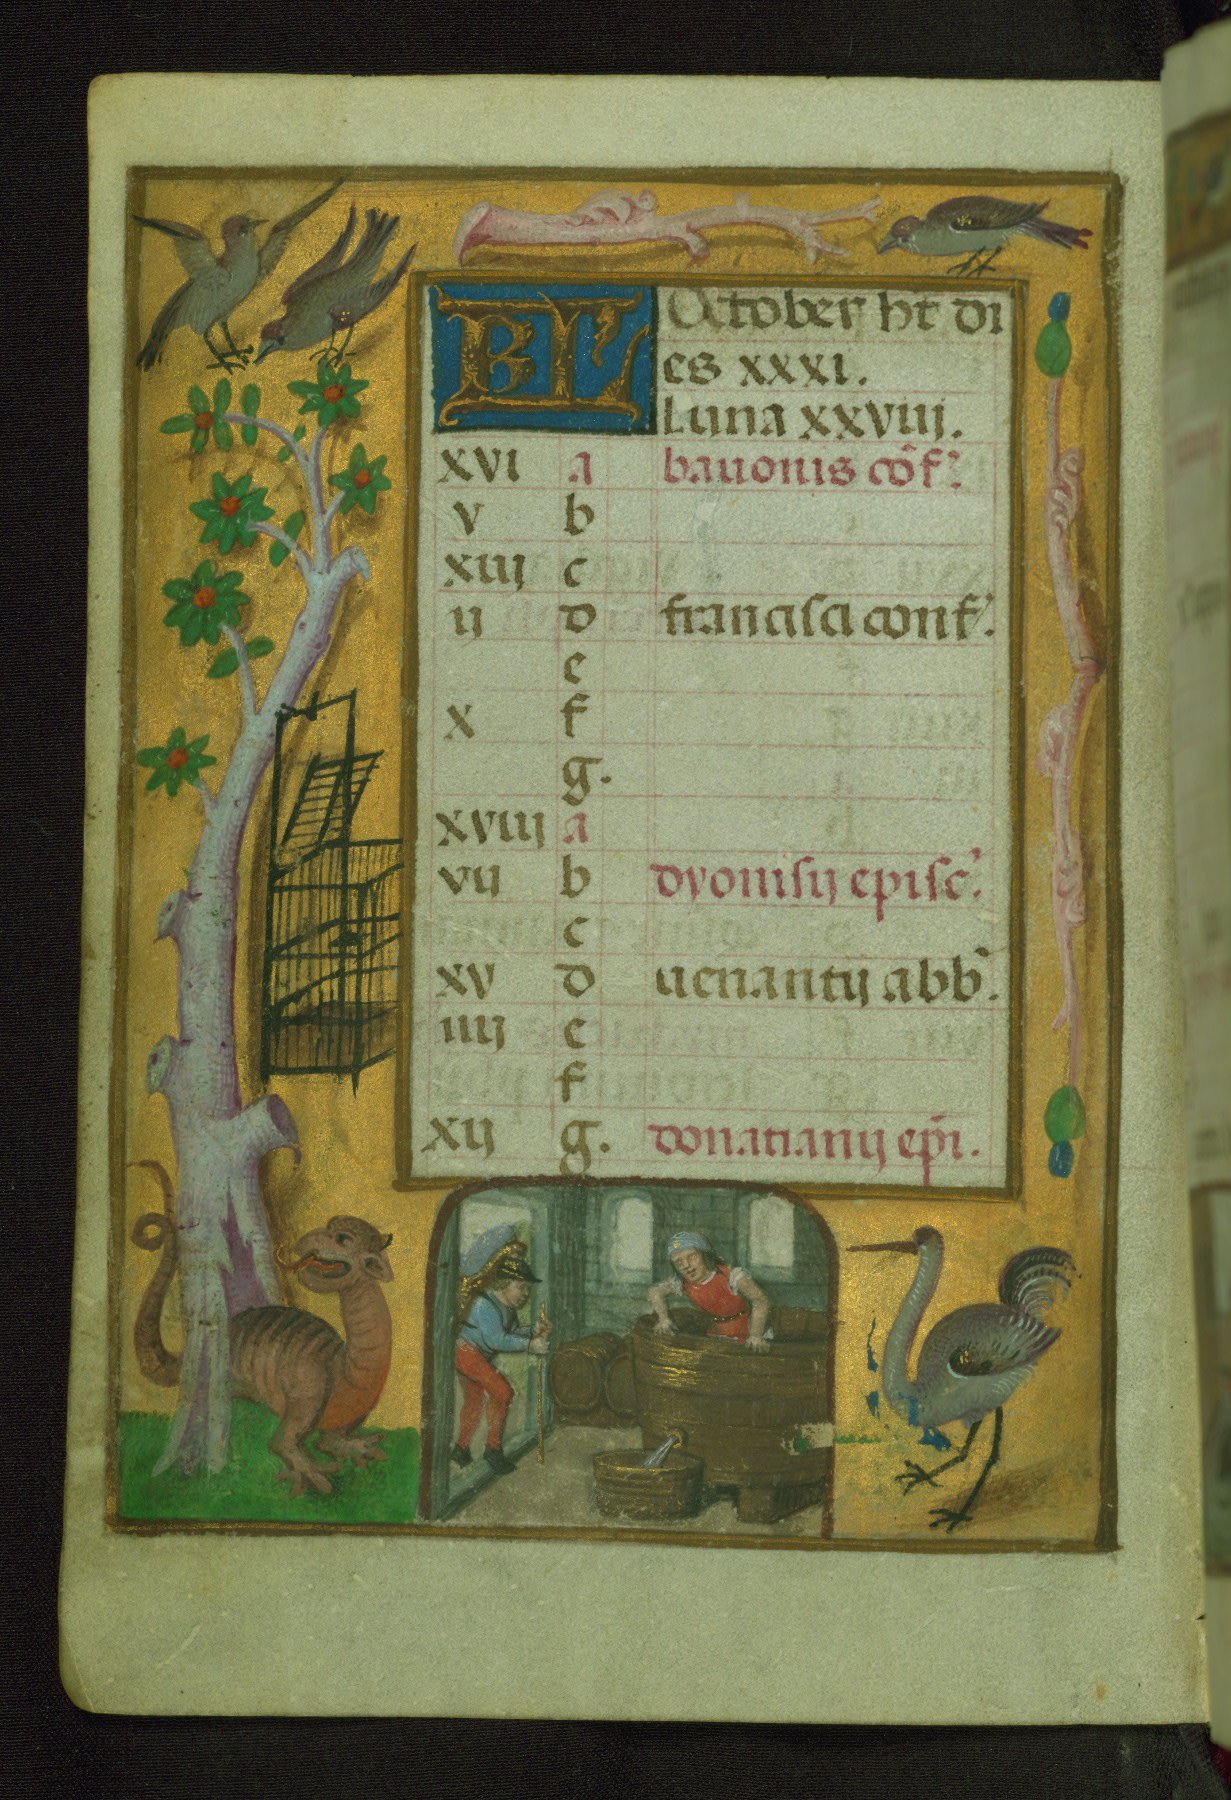 KL October ht di
es xxxi.
Luna xxviiij.
xvi a bauonis cōf.
v b
xiij c
ij d francisci conf.
e
x f
g.
xviij a
vij b dyonisij episc.
c
xv d uenantij abb.
iiij e
f
xij g. donatianij epi.